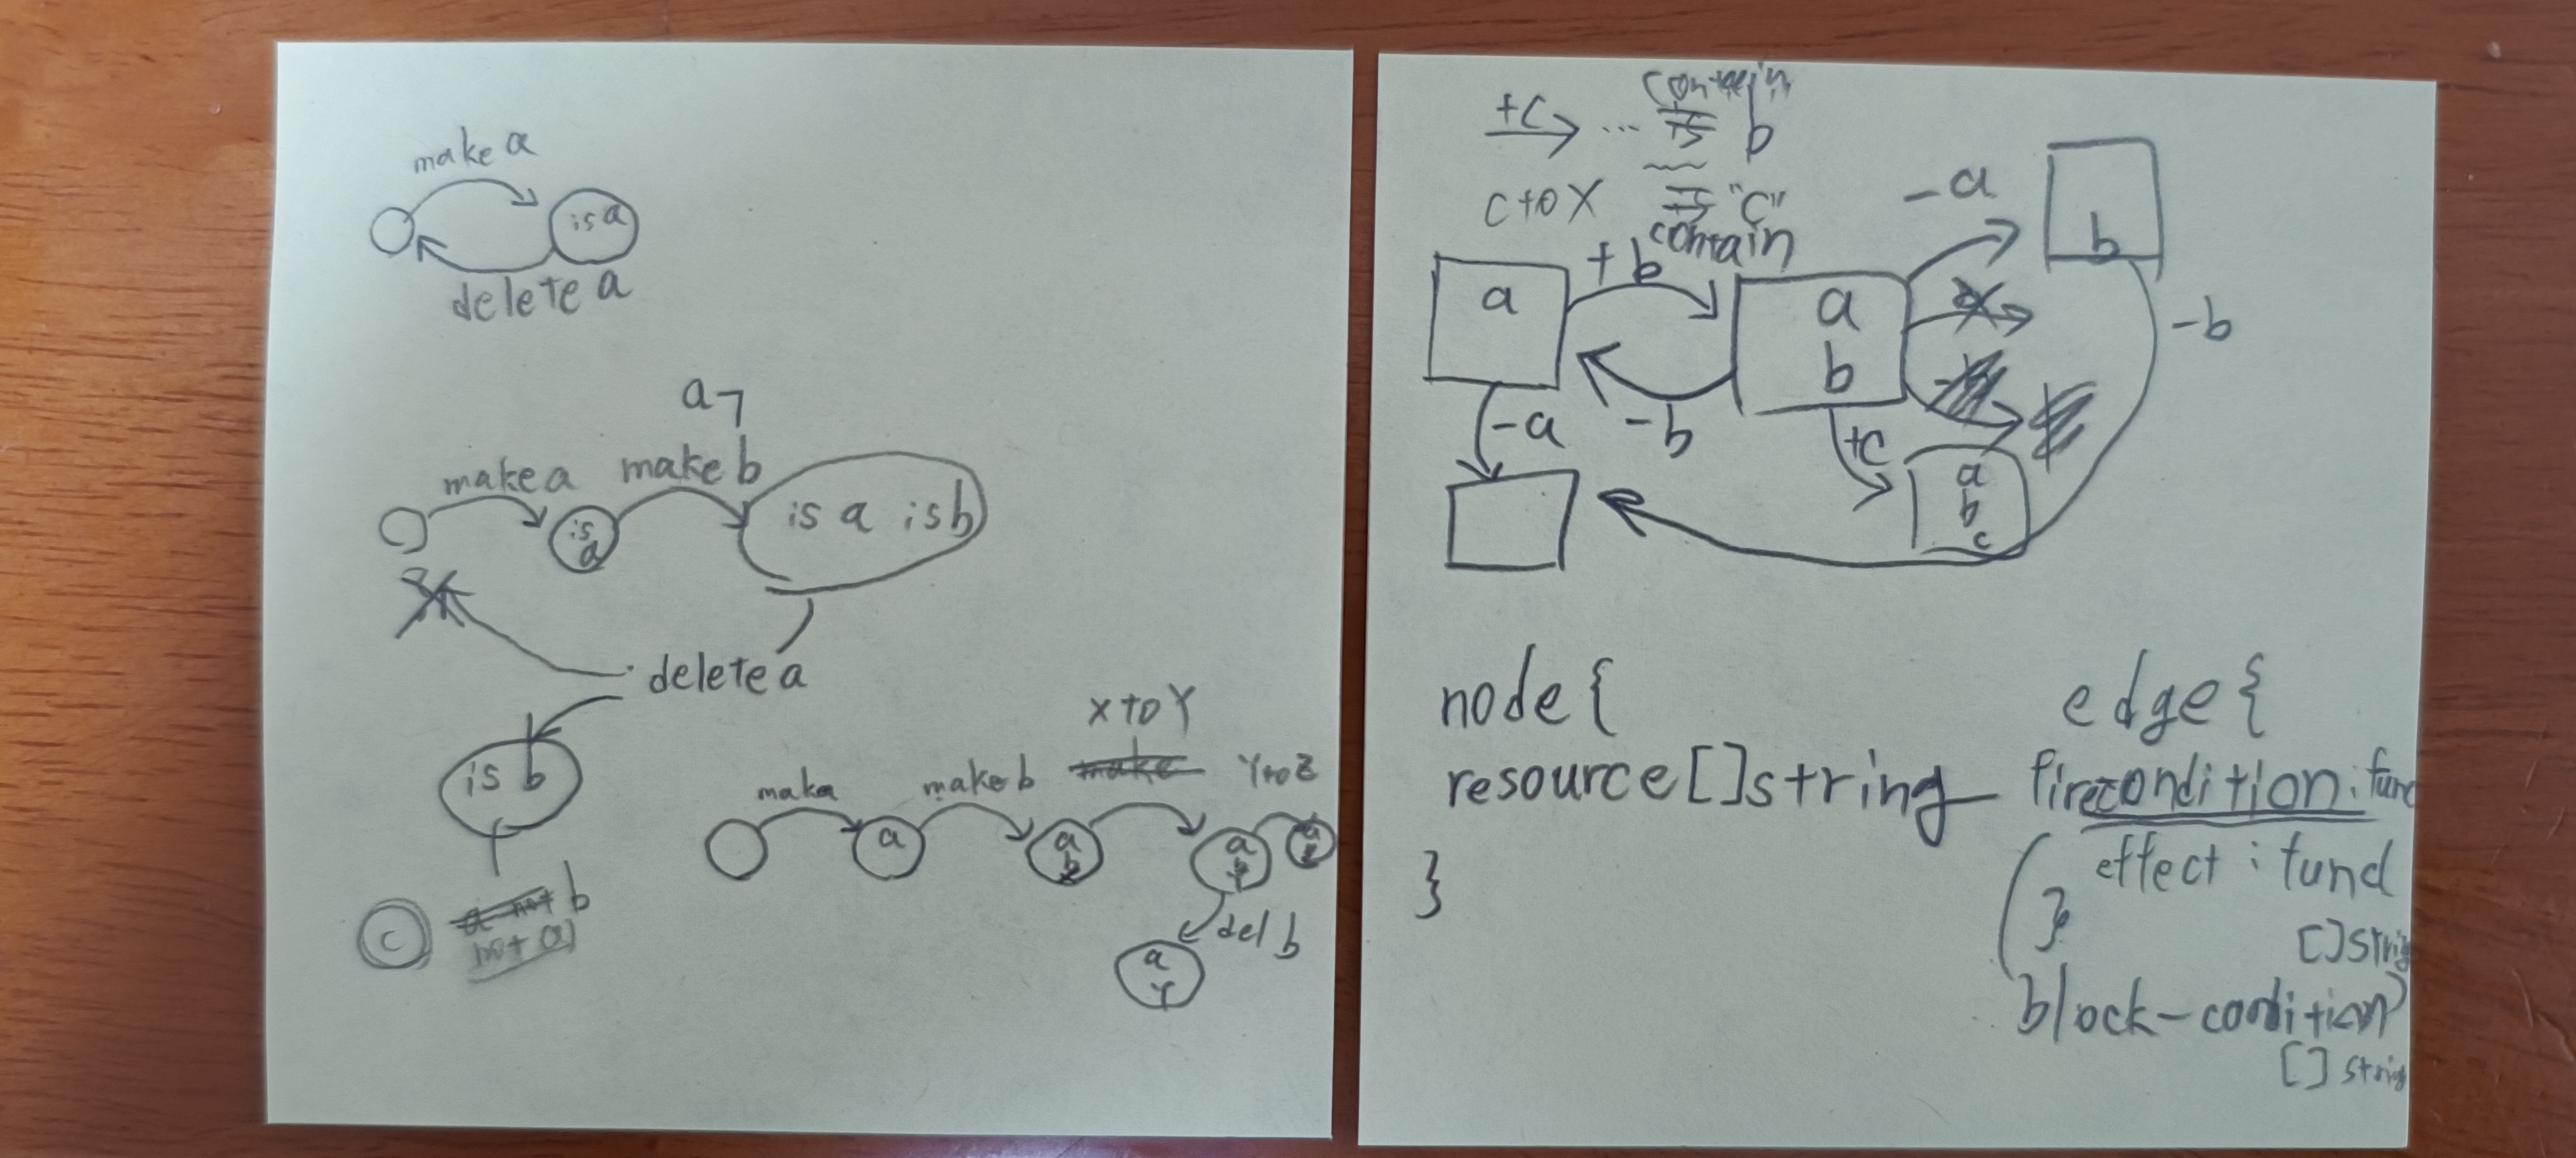 make a
is a
delete a
a
make a
make b
is
a
is a is b
delete a
is b
b
not a
c
X to Y
make
make b
Y to Z
a
a
b
a
del b
a
Y
+c
contain
b
c to X
"c"
contain
a
+b
a
b
-a
b
-b
-a
-b
+c
a
b
c
node {
resource[]string
}
edge {
firecondition: func
effect: func
}
[]string
block-condition
[]string